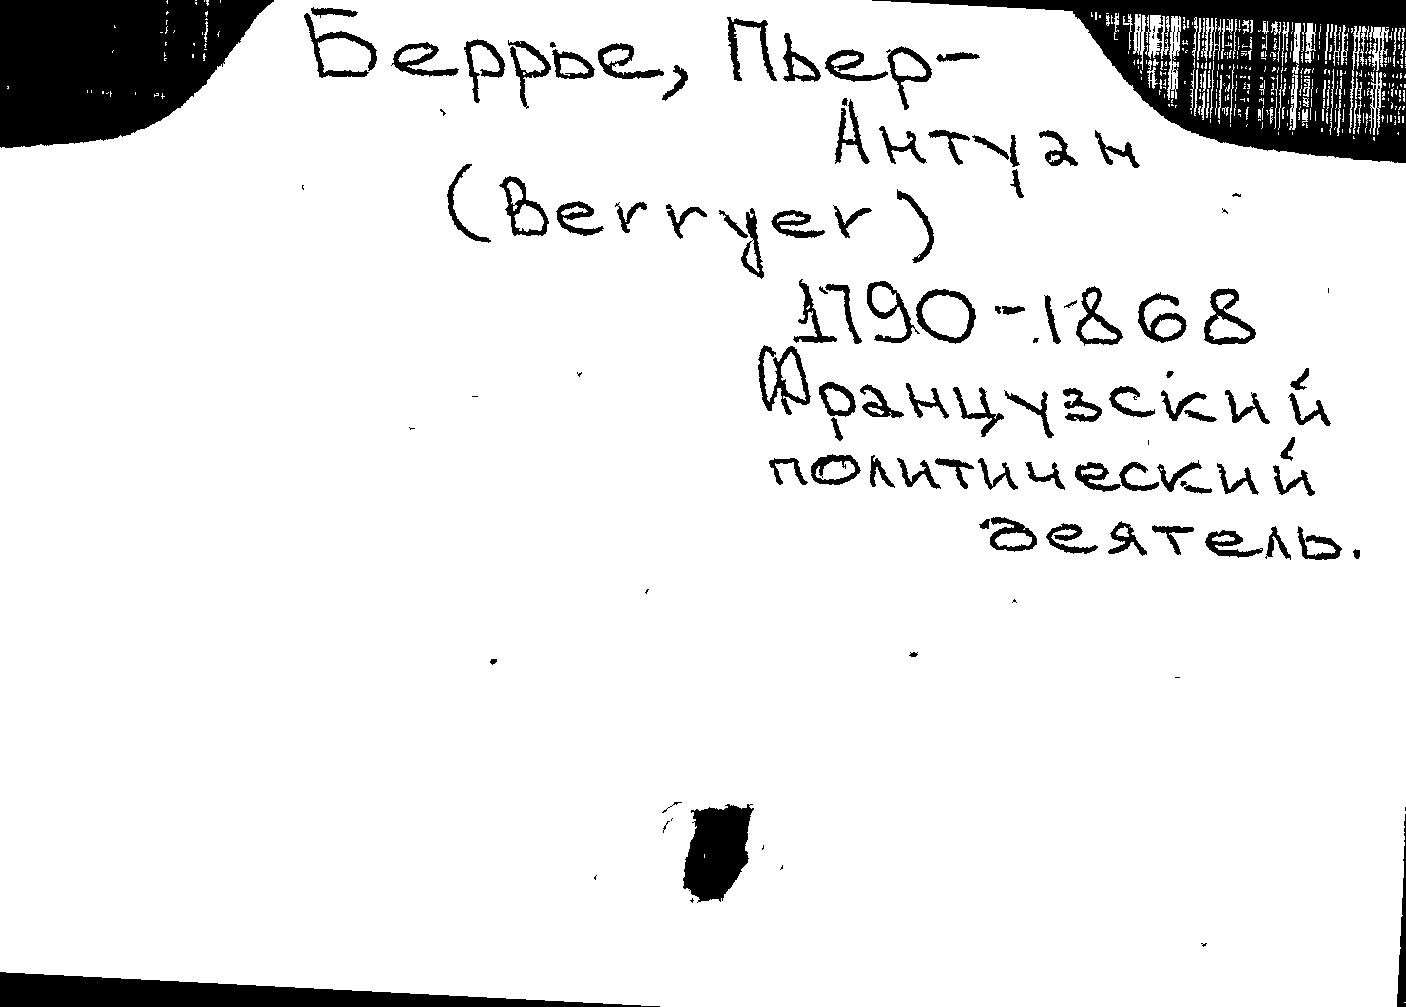 Беррье, Пьер-
Антуан
(Berryer)
1790-1868
Французский
политический
деятель.